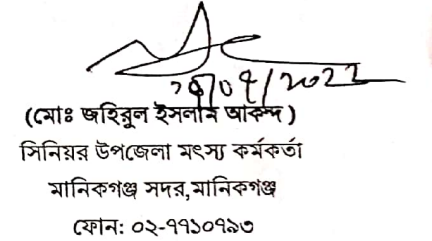 (মোঃ জহিরুল ইসলাম আকন্দ)
সিনিয়র উপজেলা মৎস্য কর্মকর্তা
মানিকগঞ্জ সদর,মানিকগঞ্জ
ফোন: ০২-৭৭১০৭৯৩